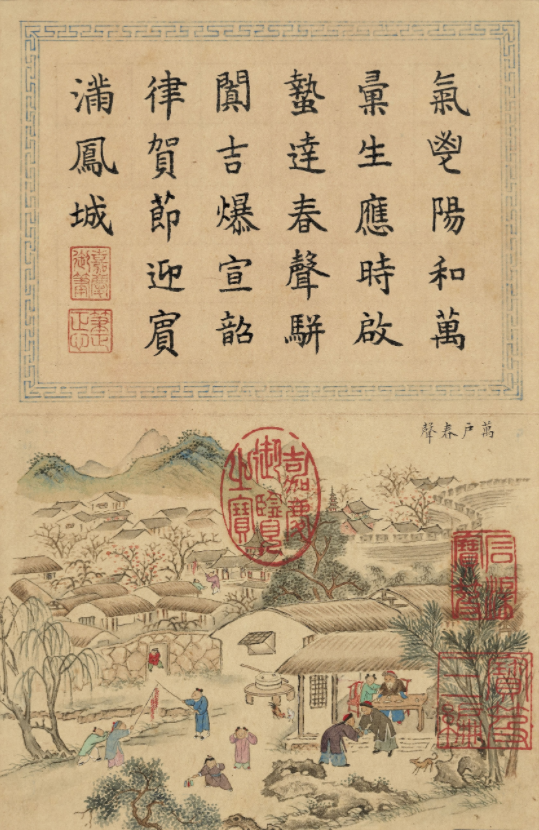 氣鬯陽和萬
彙生應時啟
蟄達春聲駢
闐吉爆宣韶
律賀節迎賓
滿鳳城
嘉慶
御筆
萬戶春聲
嘉慶
御覽
之寶
寶笈
三編